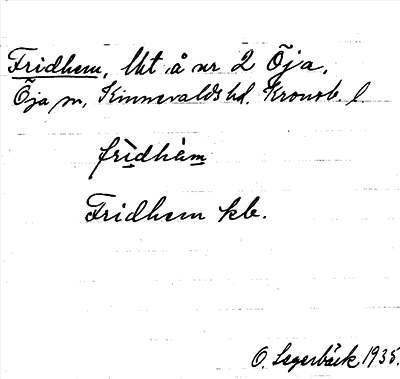 Fridhem, lht å nr 2 Öja.
Öja sn, Kinnevalds hd. Kronob. l.
fridhäm
Fridhem kb.
O. Segerbäck 1935.